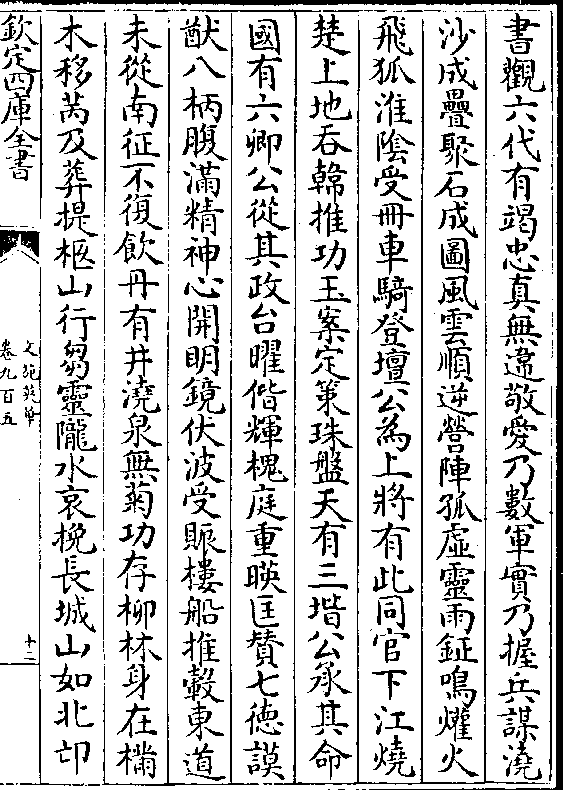 書觀六代有竭忠真無違敬愛乃數軍實乃握兵謀澆
沙成疊聚石成圖風雲順逆營陣孤虛靈雨鉦鳴爟火
飛狐淮陰受冊車騎登壇公為上將有此同官下江燒
楚上地吞韓推功玉案定策珠盤天有三堦公承其命
國有六卿公從其政台曜偕輝槐庭重暎匡賛七徳謨
猷八柄腹滿精神心開明鏡伏波受賑樓船推轂東道
未從南征不復飲丹有井澆泉無菊功存柳林身在樠
木移茑及葬提柩山行芻靈隴水哀挽長城山如北邙
欽定四庫全書
文苑英華
卷九百五
十二